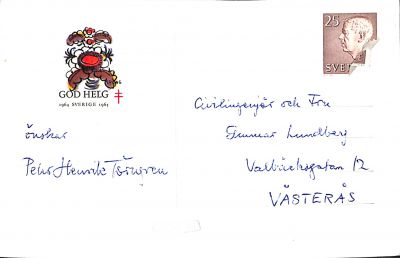 25
SVE
GOD HELG
1964 SVERIGE 1965
önskar
Pehr Henrik
Civilingenjör och Fru
Gunnar Lundberg
12
VÄSTERÅS